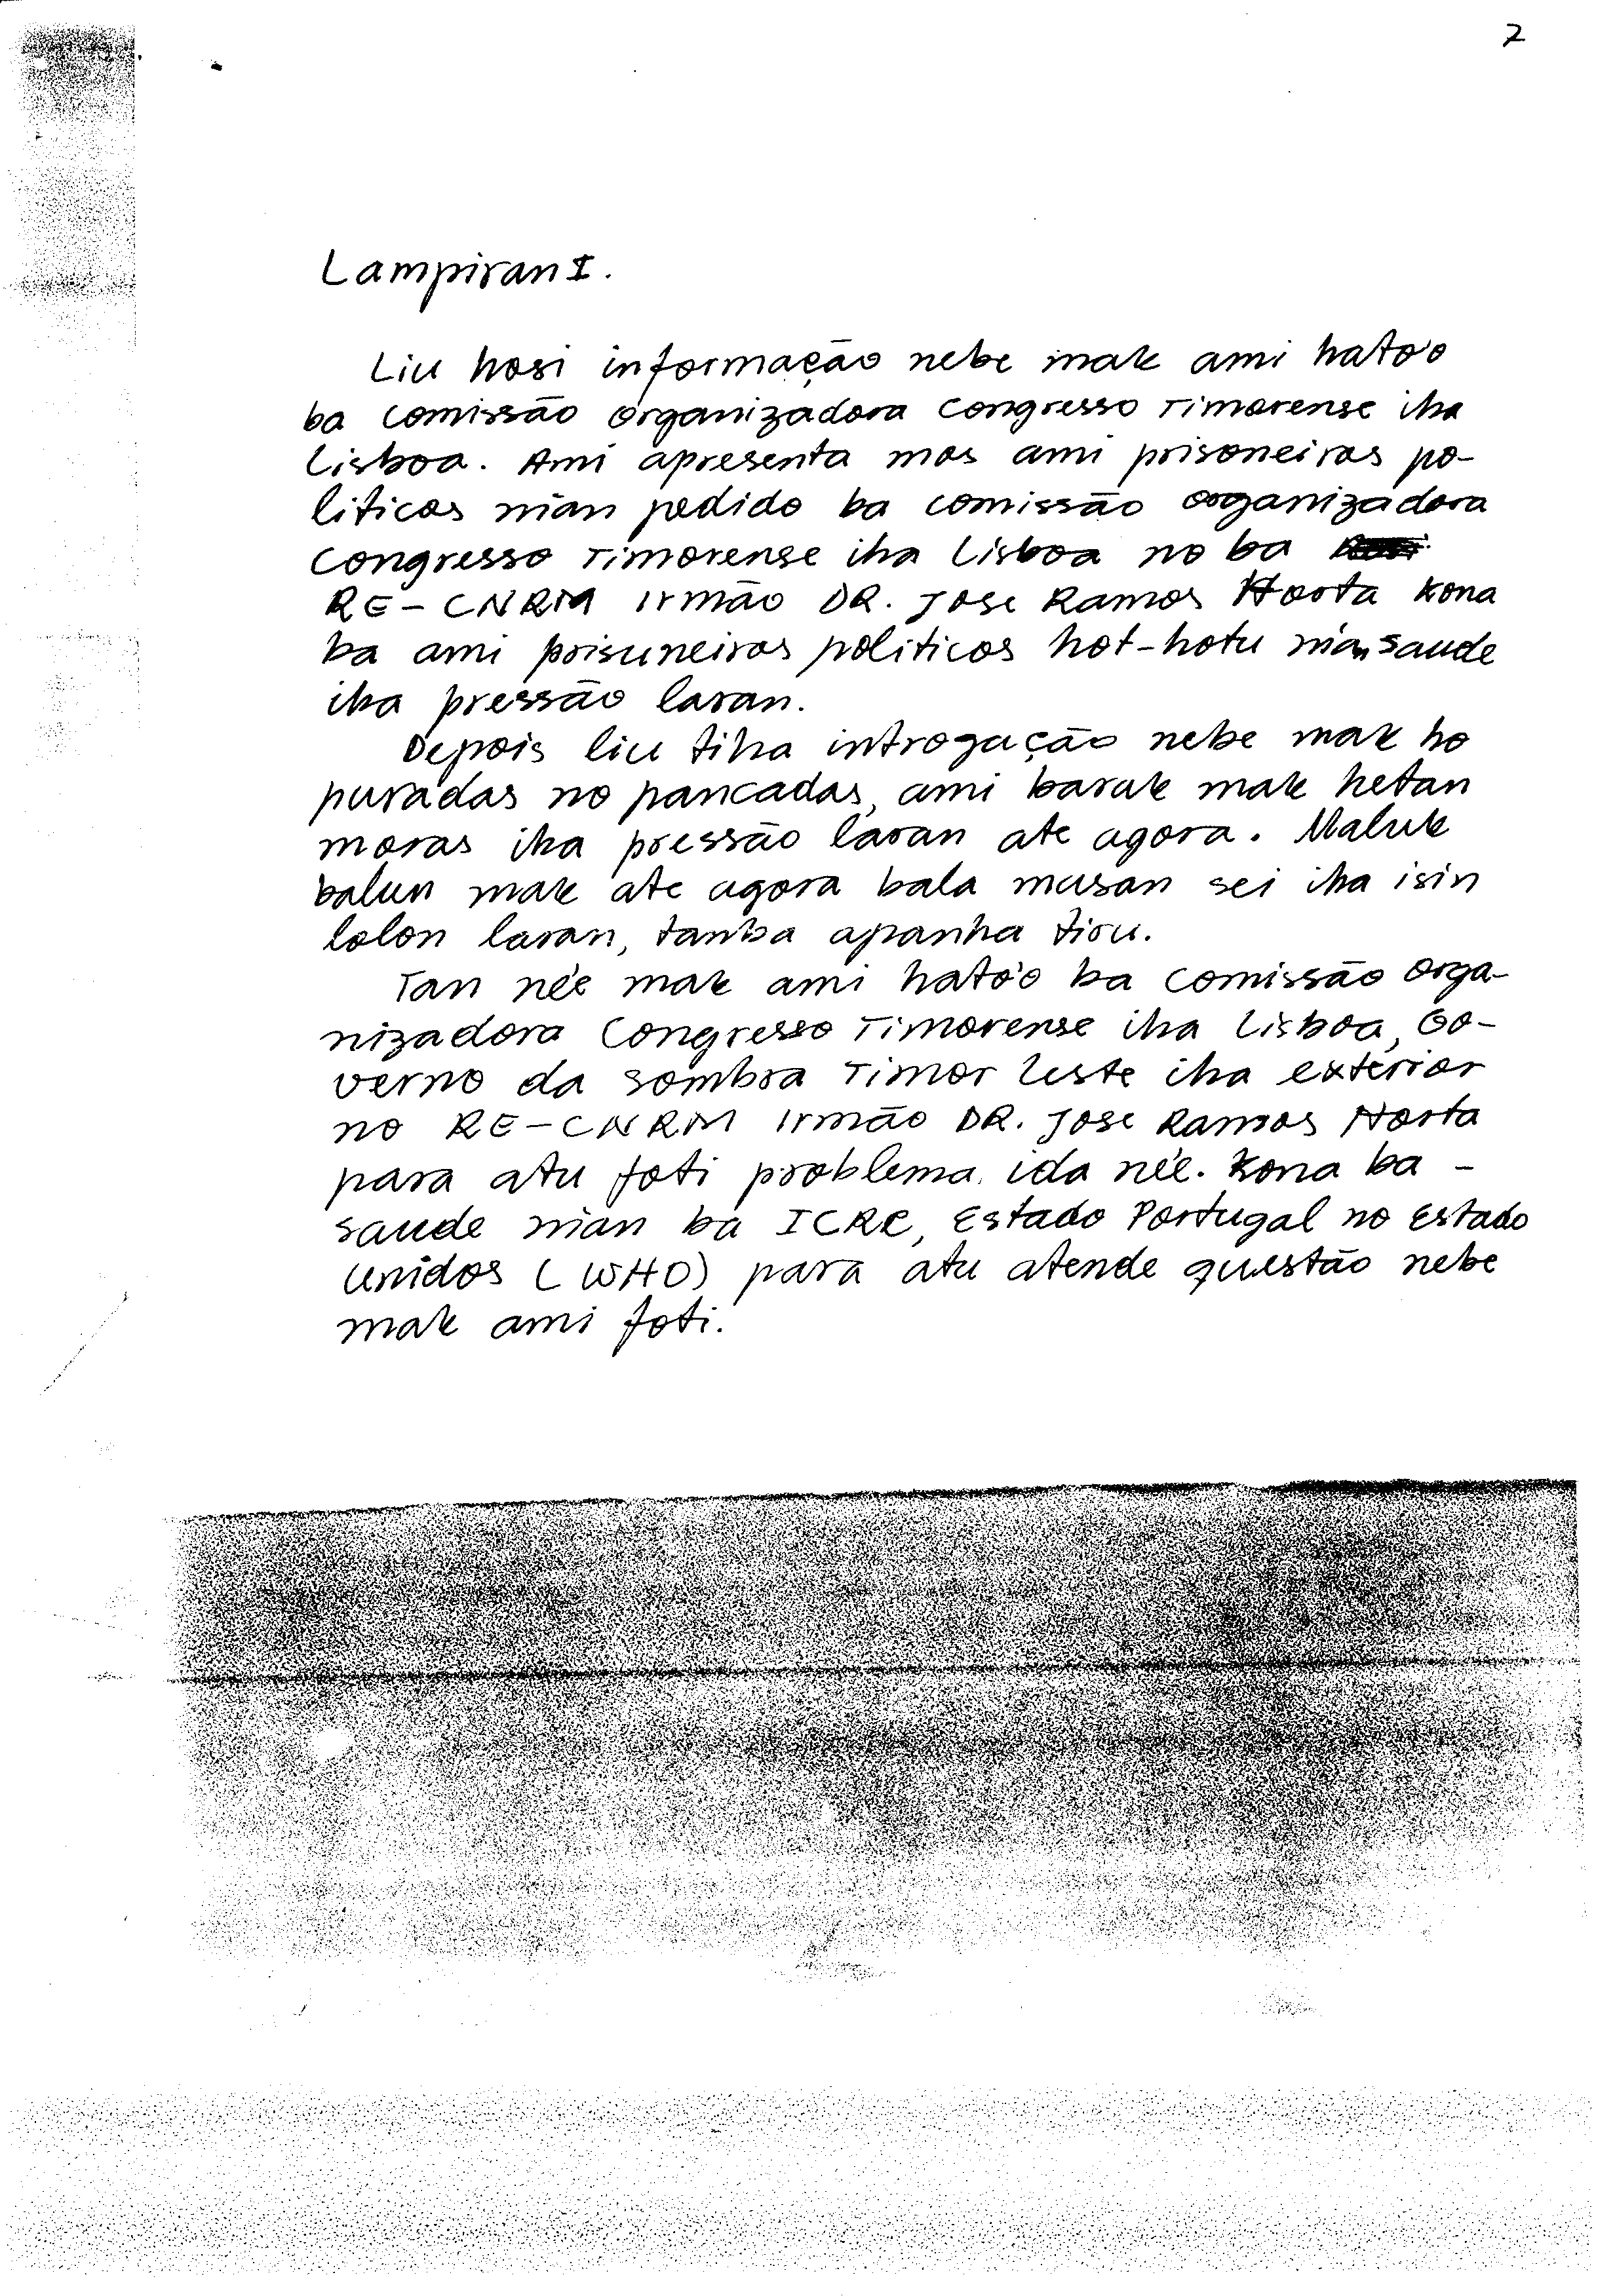 2
Lampiran I.
Liu hosi informação nebe mak ami hato'o
ba comissão organizadora congresso Timorense iha
Lisboa. Ami apresenta mos ami prisoneiros po-
liticos nián pedido ba comissão organizadora
congresso Timorense iha Lisboa no ba
RE-CNRM Irmão DR. Jose Ramos Horta kona
ba ami prisuneiros politicos hot-hotu nián saude
iha pressão laran.
Depois liu tiha introgação nebe mak ho
puradas no pancadas, ami barak mak hetan
moras iha pressão laran ate agora. Maluk
balun mak ate agora bala musan sei iha isin
lolon laran, tanba apanha tiru.
Tan né'e mak ami hato'o ba comissão orga-
nizadora Congresso Timorense iha Lisboa, Go-
verno da sombra Timor Leste iha exterior
no RE-CNRM Irmão DR. Jose Ramos Horta
para atu foti problema ida né'e. Kona ba -
saude nián ba ICRC, Estado Portugal no Estado
Unidos (WHO) para atu atende questão nebe
mak ami foti.